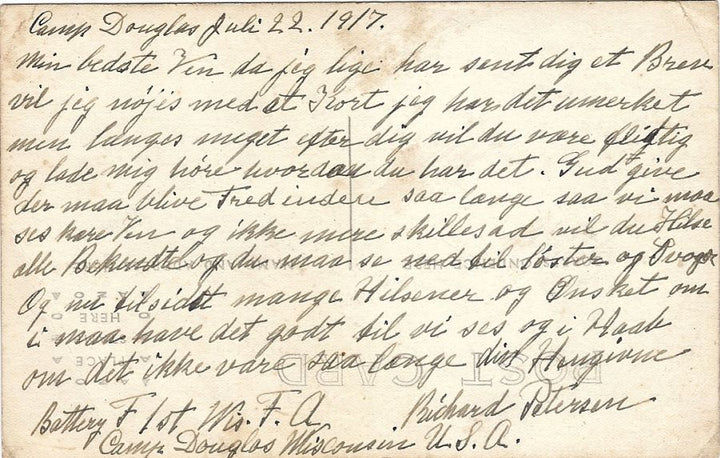 Camp Douglas Juli 22. 1917.
Min bedste Ven da jeg lige har sent dig et Brev
vil jeg nøjes med et Kort jeg har det umerket
men langes meget efter dig vil du være flittig
og lade mig høre hvordan du har det. Gud give
der maa blive Fred indere saa længe saa vi maa
ses kære Ven og ikke mere skilles ad vil du Hilse
alle Bekendte og du maa se ned til Søster og
Og nu tilsidst mange Hilsener og Ønsket om
i maa have det godt til vi ses og i Haab
om det ikke vare saa længe din Hengivne
Battery F 1st Wis. F. A Richard Petersen
Camp Douglas Wisconsin U. S. A.
POST CARD